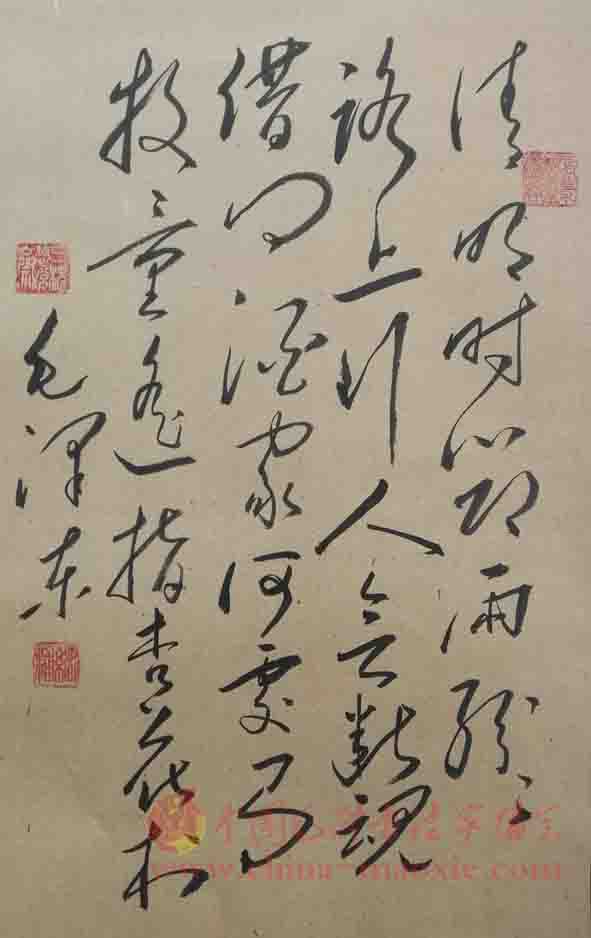 清明时節雨紛〻
路上行人欲斷魂
借问酒家何處有
牧童遙指杏花村
毛泽东
www.china-maoxie.com